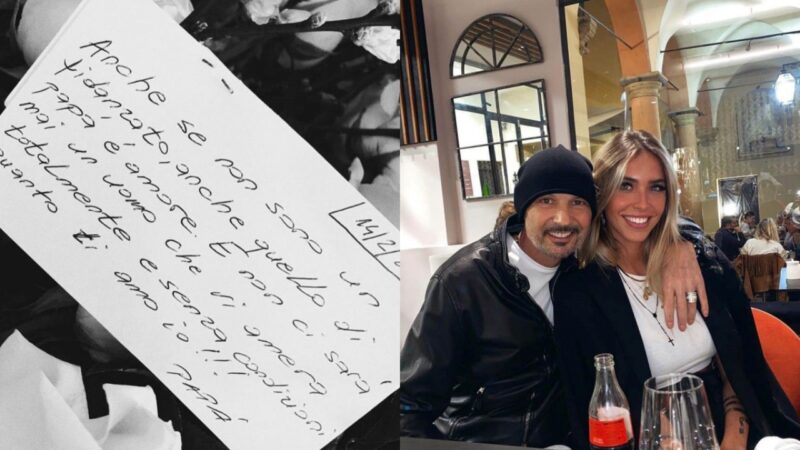 14/2/
Anche se non sono un
fidanzato, anche quello di
papà è amore. E non ci sarà
mai un uomo che vi amerà
totalmente e senza condizioni
quanto ti amo io!!!
PAPÀ